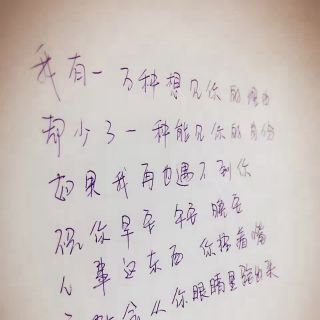 我有一万种想见你的理由
却少了一种能见你的身份
如果我再也遇不到你
祝你早安 午安 晚安
人 事这东西 你捂着嘴
会从你眼睛里跑出来